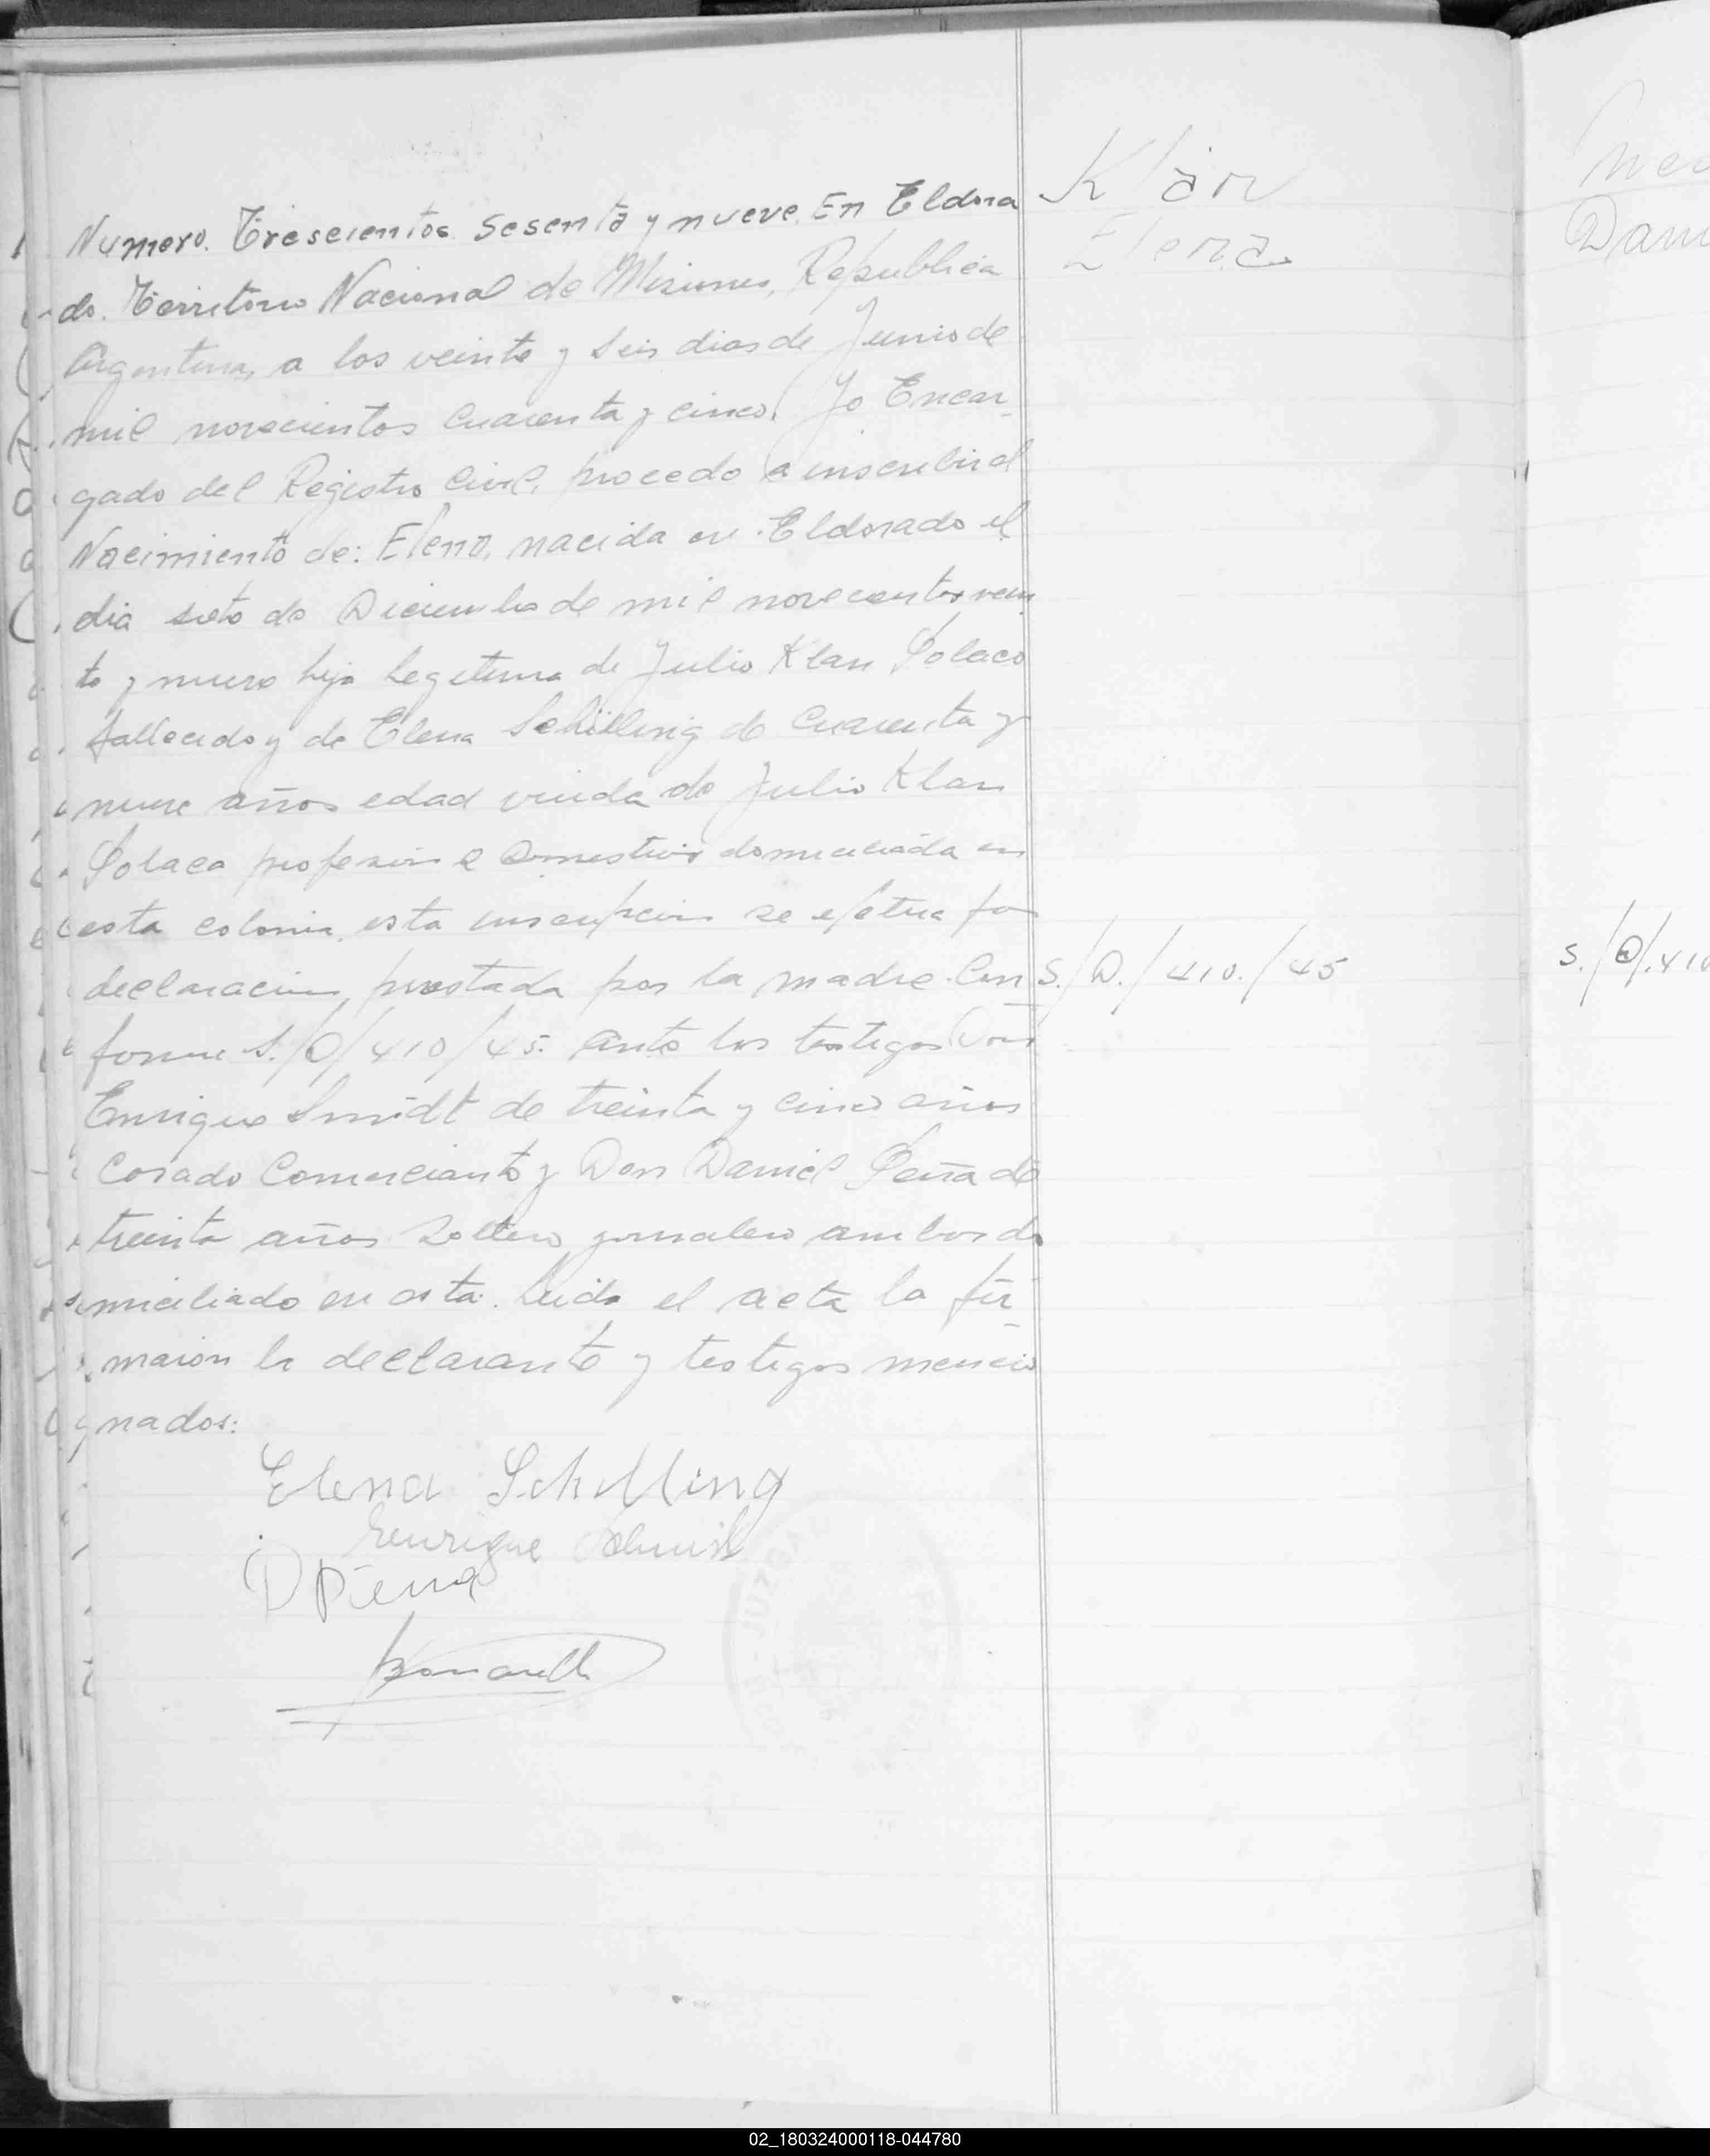 Klan
Elena
Numero. Trescientos sesenta y nueve. En Eldora
do. Territorio Nacional de Misiones, Republica
Argentina, a los veinte y seis dias de Junio de
mil novecientos cuarenta y cinco. Yo Encar-
gado del Registro Civil, procedo a inscribir el
Nacimiento de: Elena, nacida en Eldorado el
dia siete de Diciembre de mil novecientos vein
te y nueve hija legitima de Julio Klan Polaco
fallecido y de Elena Schilling de cuarenta y
nueve años edad viuda de Julio Klan
Polaca profesion domestica domiciliada en
esta colonia, esta inscripcion se efetua por
declaracion prestada por la madre. Con
S./D./410./45
forme S./D/410/45. ante los testigos Don
Enrique Smidt de treinta y cinco años
Casado Comerciante y Don Daniel Peña de
treinta años Soltero jornalero ambos do
miciliado en esta. Leida el acta la fir-
maron la declarante y testigos mencio
nados:
Elena Schilling
Henrique Schmidt
D Pena
Dani
S./D/.410
02_180324000118-044780